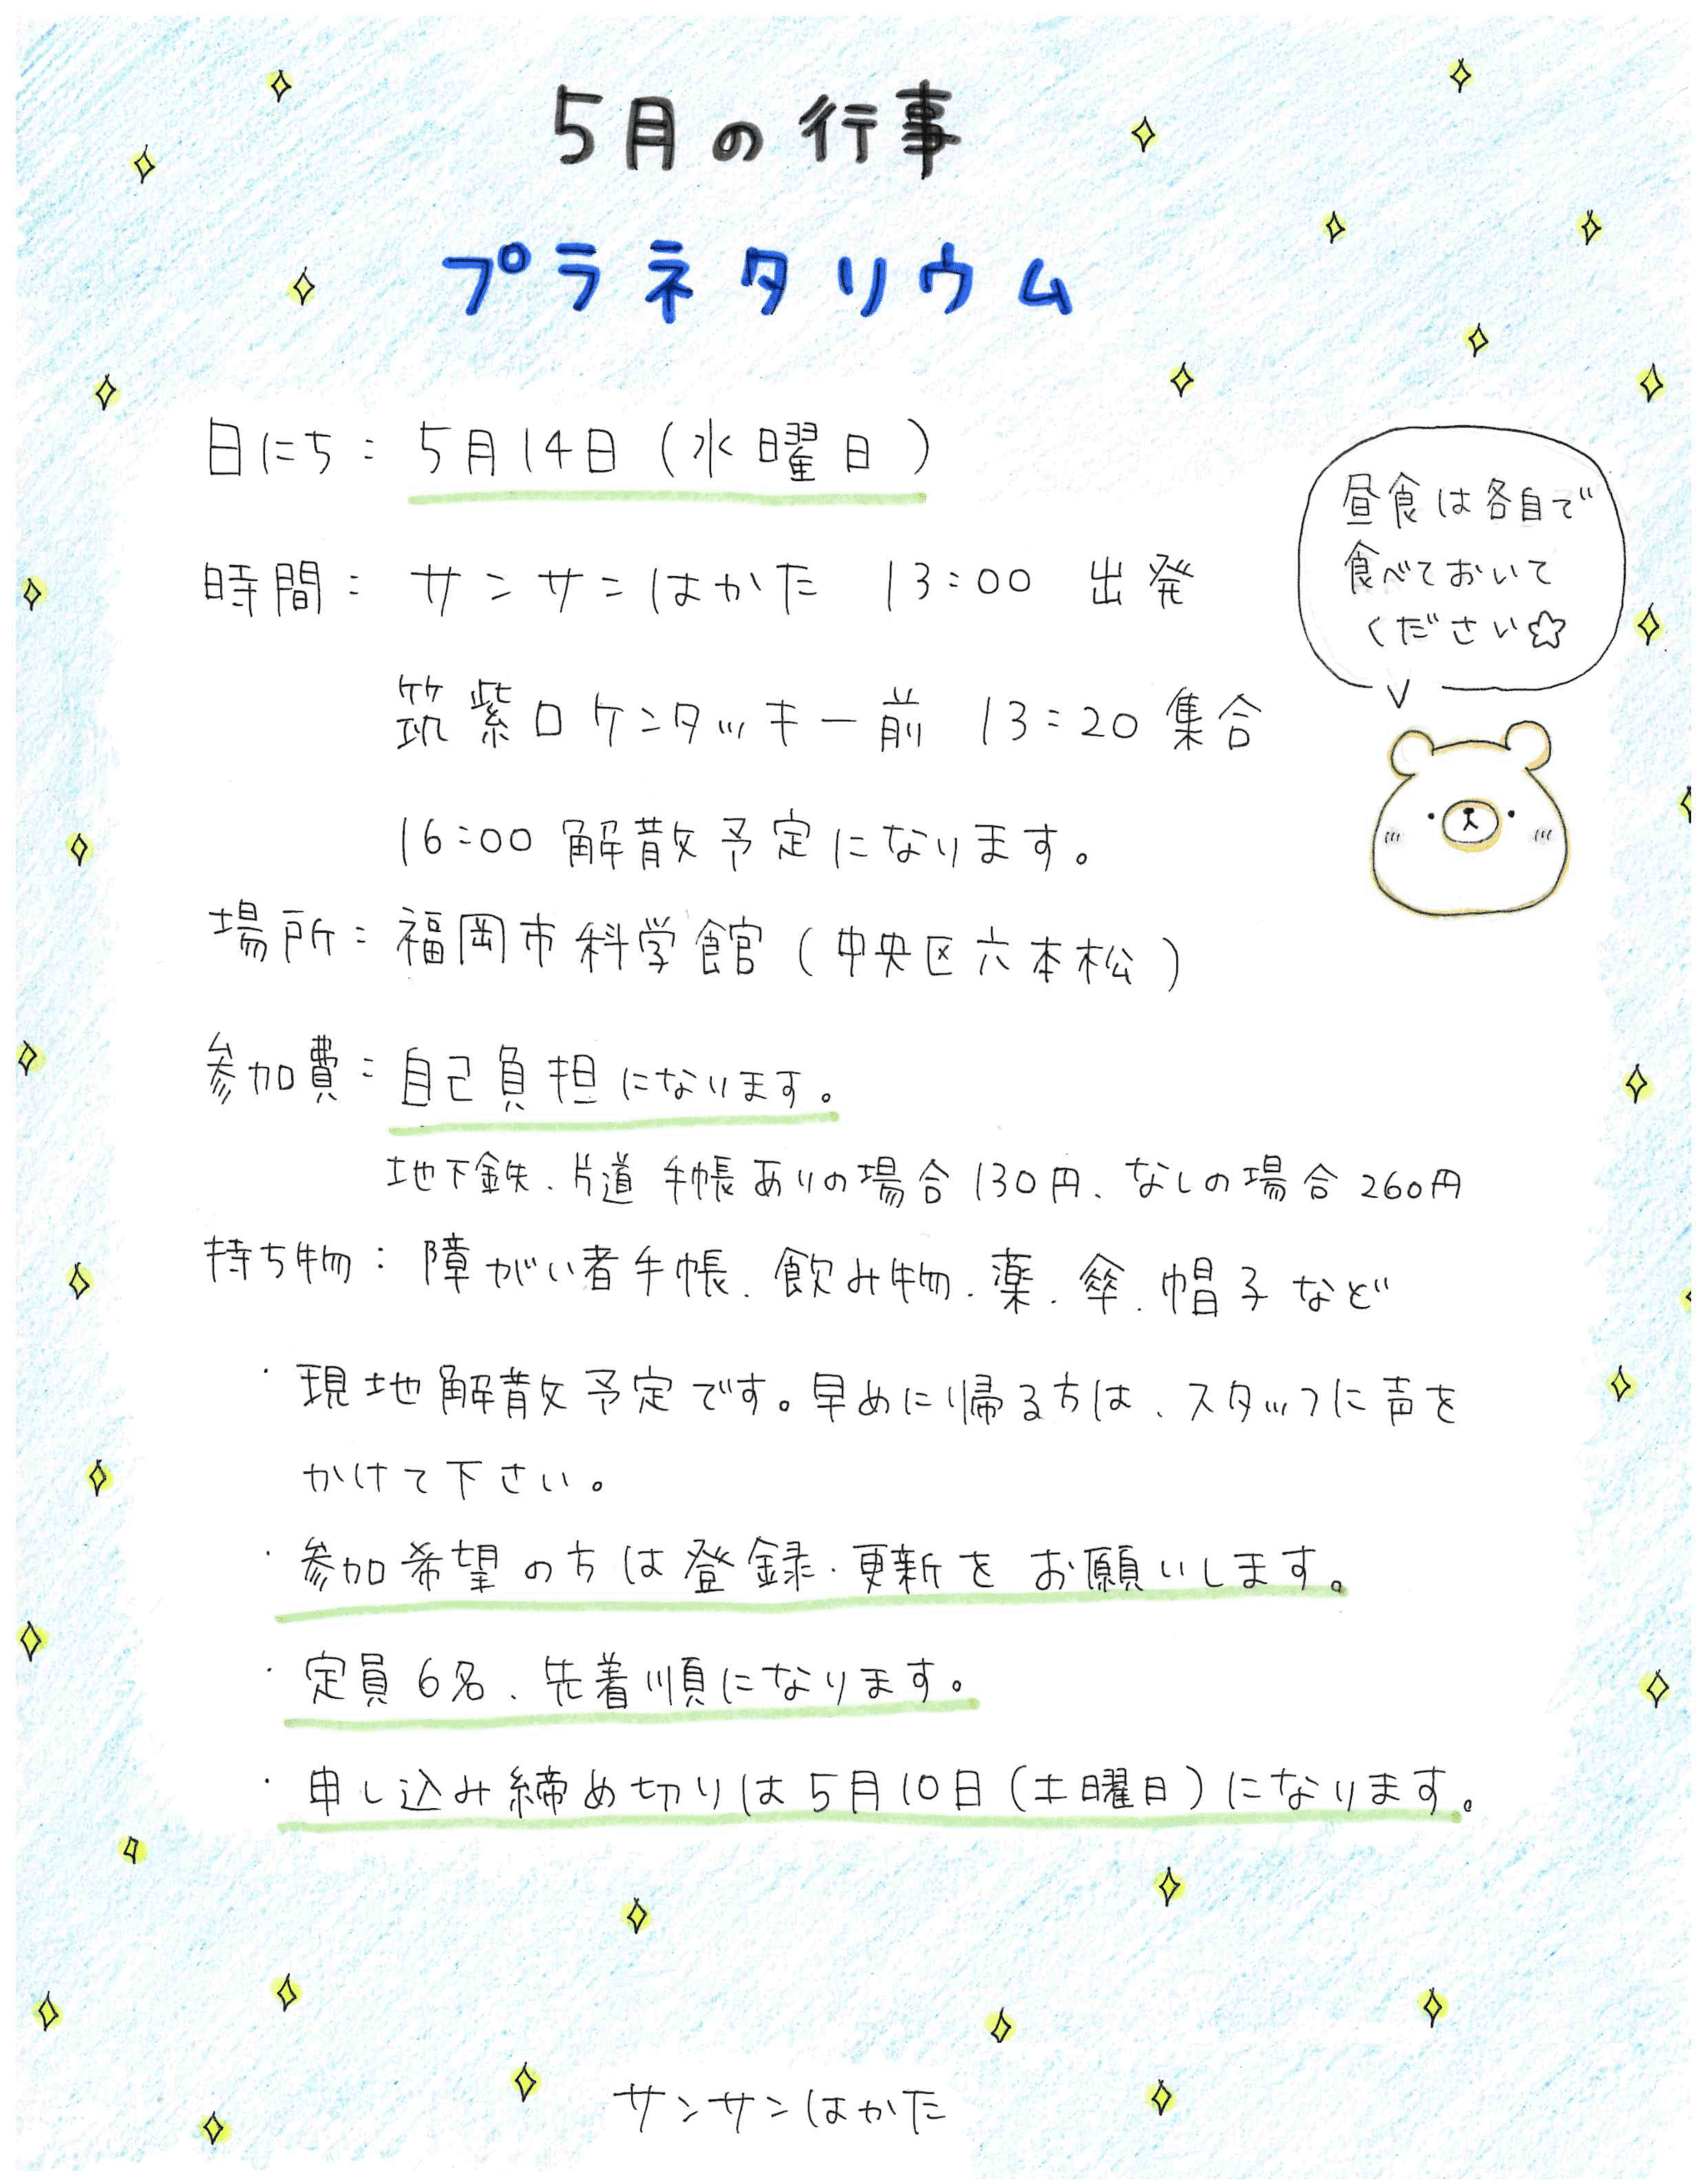 5月の行事
プラネタリウム
日にち：5月14日（水曜日）
昼食は各自で
食べておいて
ください☆
時間：サンサンはかた 13:00 出発
筑紫口ケンタッキー前 13:20 集合
16:00 解散予定になります。
場所：福岡市科学館（中央区六本松）
参加費：自己負担になります。
地下鉄、片道 手帳ありの場合130円、なしの場合260円
持ち物：障がい者手帳、飲み物、薬、傘、帽子など
・現地解散予定です。早めに帰る方は、スタッフに声を
かけて下さい。
・参加希望の方は登録・更新をお願いします。
・定員6名、先着順になります。
・申し込み締め切りは5月10日（土曜日）になります。
サンサンはかた